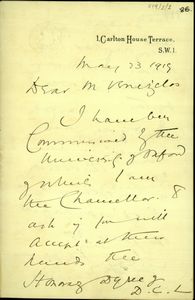 1, Carlton House Terrace,
S.W.1.
May 23 1919
Dear M Venizelos
I have been
Commissioned by the
University of Oxford
of which I am
the Chancellor to
ask if you will
accept at their
hands the
Honorary Degree of
D.C.L.